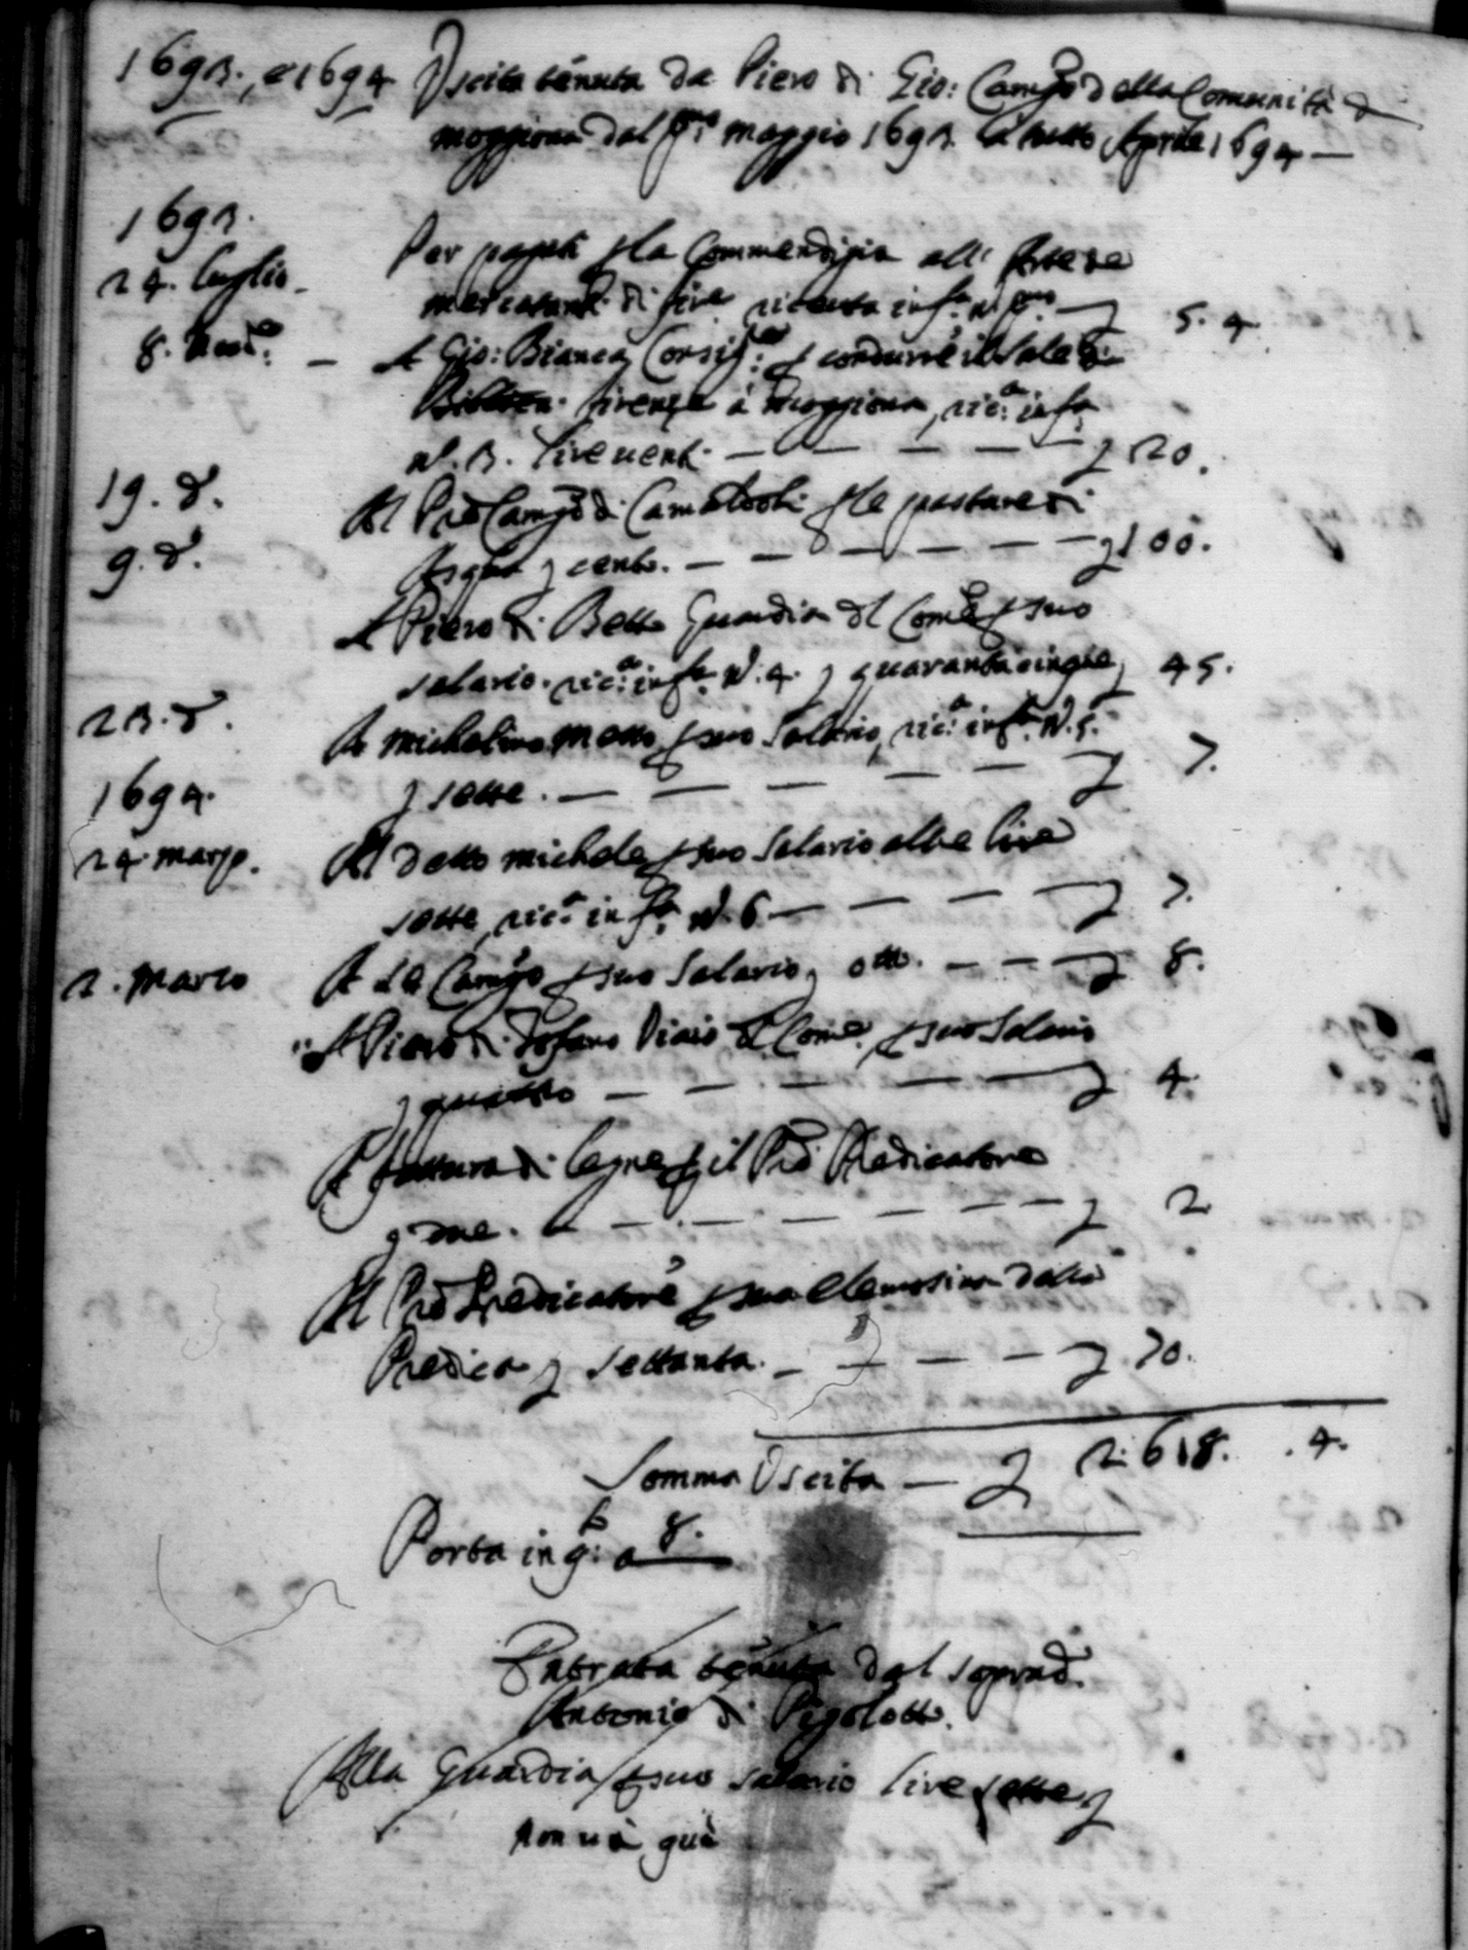 1693., e 1694 Uscita tenuta da Piero di Gio: Camgo della Comunità di
moggiona dal pmo maggio 1693. a tutto Aprile 1694 —
1693.
24. luglio. Per pagati p la Commendigia all' Arte de
mercatanti di fire ricevuta in fa. N. pmo — 5. 4
8. — A Gio: Bianca Corsig: p condurre il Sale di
firenze à moggiona, ric.a in fa.
N. 3. lire venti — — — — 20.
19. d. Al Pre Camgo di Camaldoli p le pasture di
cento. — — — — — — 100.
9. d. A Piero di Betto Guardia del Comè p suo
salario. ric.a in fa. N. 4. quaranta cinque 45.
23. d. A Michelino messo p suo Salario, ric.a in fa. N. 5.
sette. — — — — — 7.
1694.
24 marzo. Al detto michele p suo Salario altre lire
sette, ric.a in fa. N. 6 — — — — 7.
2. marzo A d.o Camgo p suo Salario, otto. — — — 8.
A Piero di Tofano Viaio del Comè. p suo Salario
quattro — — — — — 4.
A fattura di legne p il Prè Predicatore
due. — — — — — — 2
Al Prè Predicatore p sua elemosina della
Predica settanta. — — — — 70.
Somma Uscita — 2618. .4.
Porta in q: a 8.
Entrata tenuta dal soprad.
Antonio di Pigolotto.
Alla Guardia p suo salario lire sette
non và quì